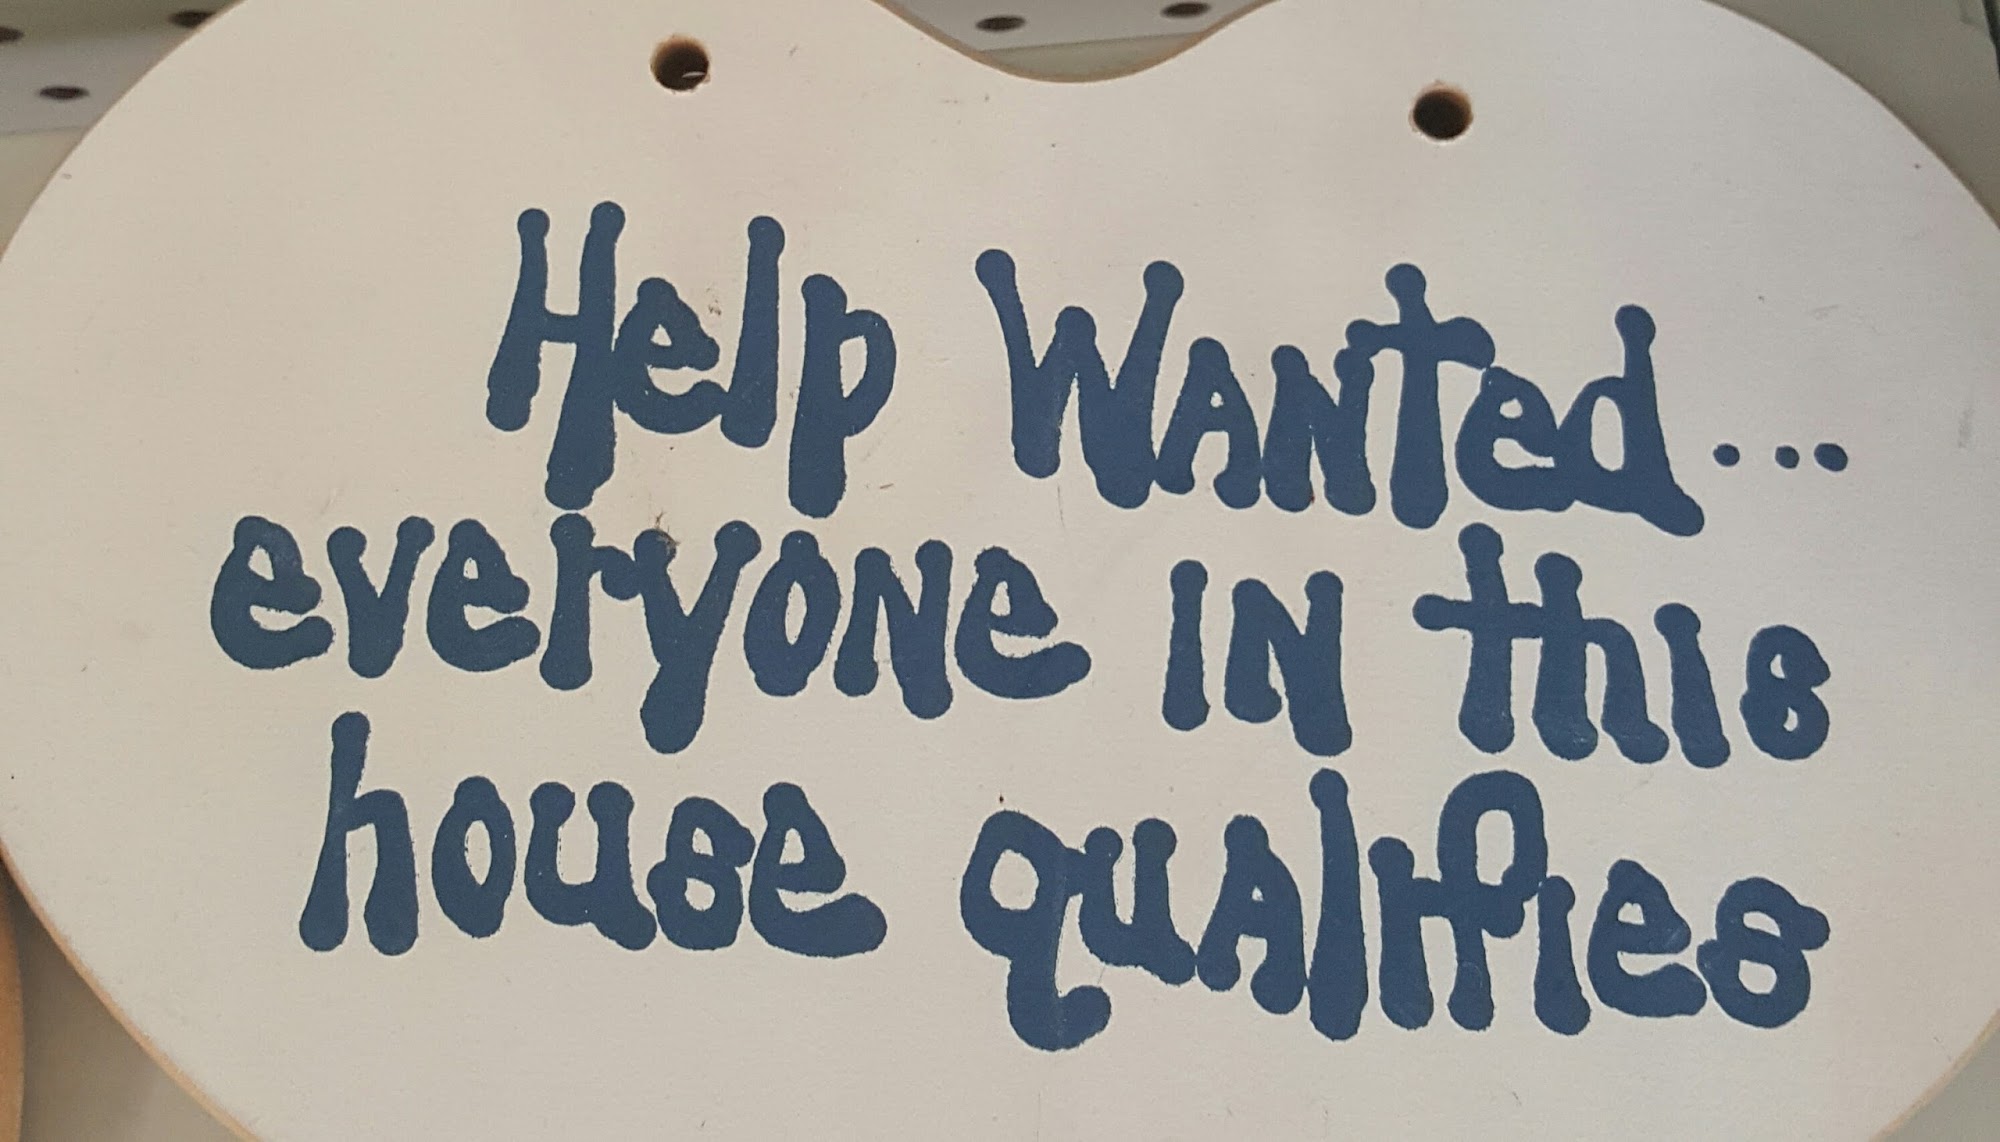 Help Wanted...
everyone in this
house qualifies